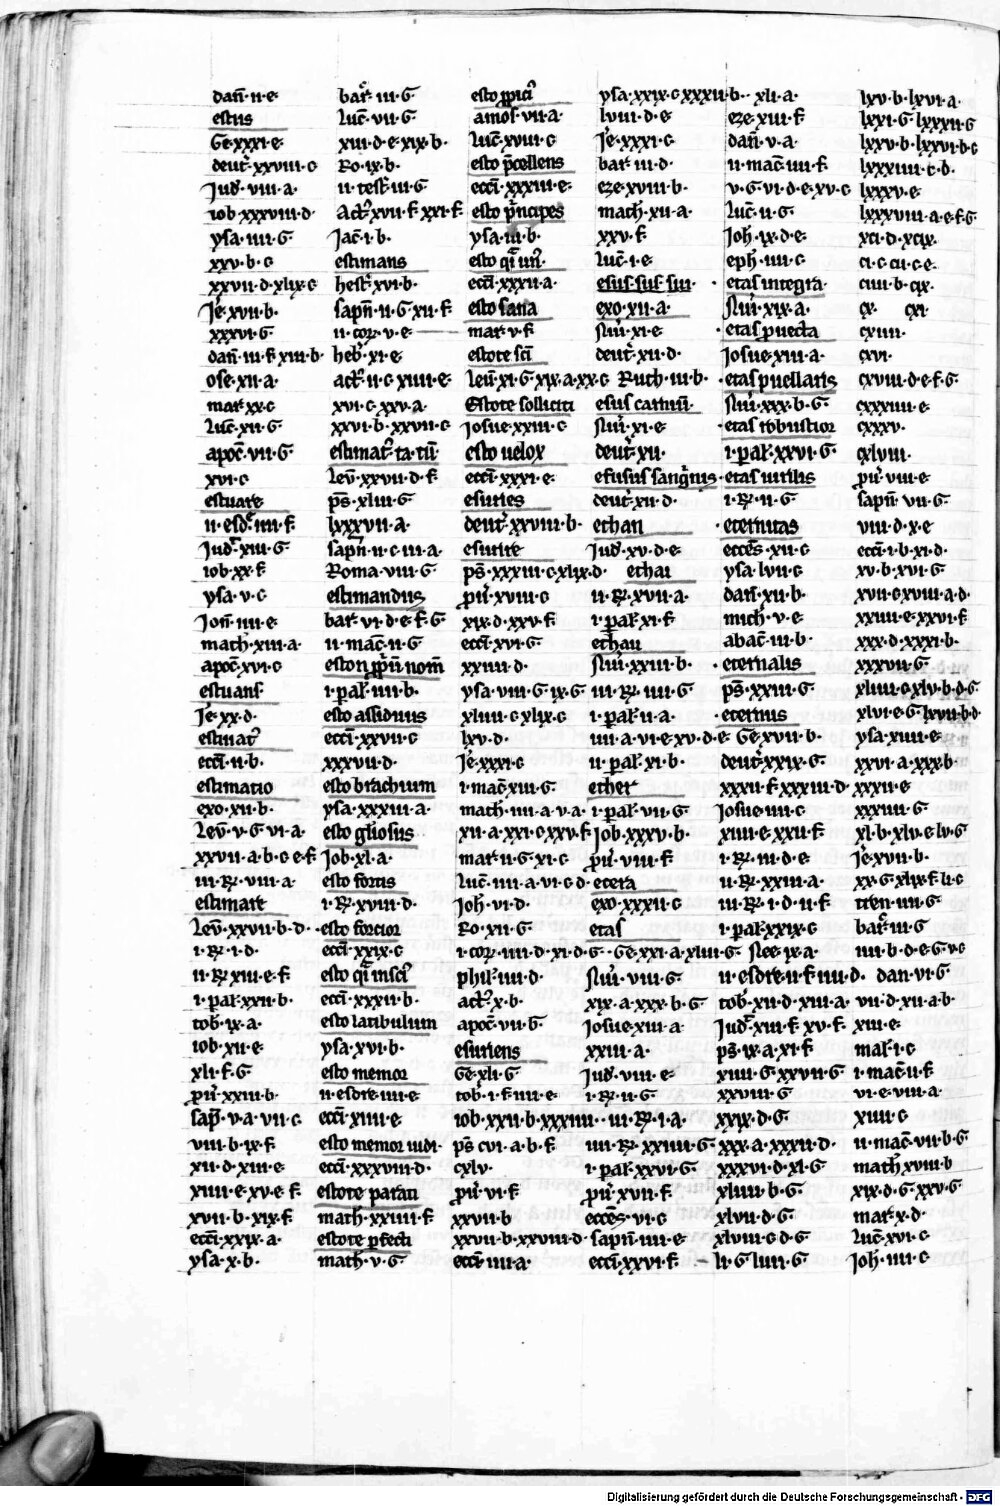 dan̄·ii·e·
estus
Ge·xxxi·e·
deut͛·xxviii·c
Jud͛·viii·a·
iob·xxxviii·d·
ysa·iiii·G·
xxv·b·c
xxvii·d·xlix·c
Je͛·xvii·b·
xxxvi·G·
dan̄·iii·f·xiii·b·
ose·xii·a·
mar͛·xx·c
Luc̄·xii·G·
apoc̄·vii·G·
xvi·c
estuare
ii·esd͛·iiii·f·
Jud͛·xiii·G·
iob·xx·f·
ysa·v·c
Jon̄·iiii·e·
math·xiii·a·
apoc̄·xvi·c
estuans·
Je͛·xx·d·
estimat͛
eccī·ii·b·
estimatio
exo·xii·b·
Lev̄·v·G·vi·a·
xxvii·a·b·c·e·f·
iii·R͛·viii·a·
estimare
Lev̄·xxvii·b·d·
i·R͛·i·d·
ii·R͛·xiii·e·f·
i·par̄·xxii·b·
tob͛·ix·a·
iob·xii·e·
xli·f·G·
pu͛·xxiii·b·
sap̄·v·a·vii·c
viii·b·ix·f·
xii·d·xiii·e·
xiiii·e·xv·e·f·
xvii·b·xix·f·
eccī·xxix·a·
ysa·x·b·
bar͛·iii·G
Luc̄·vii·G·
xiii·d·e·xix·b·
Ro·ix·b·
Act͛·xvii·f·xxi·f·
Jac̄·i·b·
estimans
hest͛·xvi·b·
sapn̄·ii·G·xii·f·
ii·cor͛·v·e·
heb͛·xi·e·
act͛·ii·c·xiiii·e·
xvi·c·xxv·a·
xxvi·b·xxvii·c
estimat͛·ta·tū·
Lev̄·xxvii·d·f·
ps̄·xliii·G·
lxxxvii·a·
sapn̄·ii·c·iii·a·
Roma·viii·G·
estimandus
bar·vi·d·e·f·G·
ii·mac̄·ii·G·
i·par̄·iiii·b·
esto assiduus
eccī·xxvii·c
xxxvii·d·
esto brachium
ysa·xxxiii·a·
esto gl̄iosus
Job·xl·a·
esto fortis
i·R͛·xviii·d·
esto forcior
eccī·xxix·c
eccī·xxxii·b·
esto latibulum
ysa·xvi·b·
esto memor
ii·esdre·iiii·e·
eccī·xiiii·e·
esto memor iudi·
eccī·xxxviii·d·
estote parati
math·xxiiii·f·
estote pfecti
math·v·G·
esto ꝓpici͛
amos·vii·a·
Luc̄·xviii·c
esto p̄cellens
eccī·xxxiii·e·
esto p͛ncipes
ysa·iii·b·
eccī·xxxii·a·
esto sana
mar·v·f·
estote sc̄i
Lev̄·xi·G·xix·a·xx·c
Estote solliciti
Josue·xxiii·c
esto velox
eccī·xxxi·e·
esuries
deut͛·xxviii·b·
esurire
ps̄·xxxiii·c·xlix·d·
pu͛·xviii·c
xix·d·xxv·f·
eccī·xvi·G·
xxiiii·d·
ysa·viii·G·ix·G·
xliiii·c·xlix·c
lxv·d·
Je͛·xxxi·c
i·mac̄·xiii·G·
math·iiii·a·v·a·
xii·a·xxi·c·xxv·f·
mar·ii·G·xi·c
Luc̄·iiii·a·vi·c·d·
Joh͛·vi·d·
Ro·xii·G·
i·cor͛·iiii·d·xi·d·G·
phil͛·iiii·d·
act͛·x·b·
apoc̄·vii·G·
esuriens
Ge·xli·G·
tob·i·f·iiii·e·
iob·xxii·b·xxxiiii·
ps̄·cvi·a·b·f·
cxlv·
pu͛·vi·f·
xxvii·b
xxvii·b·xxviii·d·
eccī·iiii·a·
ysa·xxix·c·xxxii·b·
lviii·d·e·
Je͛·xxxi·c·
bar͛·iii·d·
eze·xviii·b·
math·xii·a·
xxv·f·
Luc̄·i·e·
esus·sus·sui·
exo·xii·a·
Nu͛·xi·e·
deut͛·xii·d·
Ruth·iii·b·
esus carniū·
Nu͛·xi·e·
deut͛·xii·
efusus sangnis·
deut͛·xii·d·
ethan
Jud͛·xv·d·e·
ethai
ii·R͛·xvii·a·
i·par̄·xi·f·
ethau
Nu͛·xxiii·b·
iii·R͛·iiii·G·
i·par̄·ii·a·
iiii·a·vi·e·xv·d·e·
ii·par̄·xi·b·
ether
i·par̄·vii·G·
Job·xxxv·b·
pu͛·viii·f·
etera
exo·xxxii·c
etas
Ge·xxi·a·xliii·G·
Nu͛·viii·G·
xix·a·xxx·b·G·
Josue·xiii·a·
xxiii·a·
Jud͛·viii·e·
i·R͛·ii·G·
iii·R͛·i·a·
iiii·R͛·xxiiii·G·
i·par̄·xxvi·G·
pu͛·xvii·f·
ecces·vi·c
sapn̄·iiii·e·
eccī·xxvi·f·
xli·a·
eze·xiii·f·
dan̄·v·a·
ii·mac̄·iiii·f·
v·G·vi·d·e·xv·c
Luc̄·ii·G·
Joh·ix·d·e·
eph͛·iiii·c
etas integra·
Nu͛·xix·a·
etas ꝓuecta
Josue·xiii·a·
etas puellaris
Nu͛·xxx·b·G·
etas robustior
i·par̄·xxvi·G·
etas virilis
i·R͛·ii·G·
eternitas
ecces·xii·c
ysa·lvii·c
dan̄·xii·b·
mich͛·v·e·
abac̄·iii·b·
eternalis
ps̄·xxiii·G·
eternus
Ge·xvii·b·
deut͛·xxix·G·
xxxii·f·xxxiii·d·
Josue·iiii·c
xiiii·e·xxii·f·
i·R͛·iii·d·e·
ii·R͛·xxiii·a·
iii·R͛·i·d·ii·f·
i·par̄·xxix·c
Nee·ix·a·
ii·esdre·ii·f·iiii·d·
tob͛·xii·d·xiii·a·
Jud͛·xiii·f·xv·f·
ps̄·ix·a·xi·f·
xiiii·G·xxvii·G·
xxviii·G·
xxix·d·G·
xxx·a·xxxii·d·
xxxvi·d·xl·G·
xliiii·b·G·
xlvii·d·G·
xlviii·c·d·G·
li·G·liiii·G·
lxv·b·lxvi·a·
lxxi·G·lxxxii·G
lxxv·b·lxxvi·b·c
lxxxiiii·c·d·
lxxxv·e·
lxxxviii·a·e·f·G·
xci·d·xcix·
ci·c·cii·c·e·
ciii·b·cix·
cx· cxi·
cxiii·
cxvi·
cxviii·d·e·f·G·
cxxxiiii·e·
cxxxv·
cxlviii·
pu͛·viii·e·
sapn̄·vii·G·
viii·d·x·e·
eccī·i·b·xi·d·
xv·b·xvi·G·
xvii·c·xviii·a·d·
xxiiii·e·xxvi·f·
xxx·d·xxxi·b·
xxxvii·G·
xliiii·c·xlv·b·d·G·
xlvi·e·G·lxvii·b·d·
ysa·xiiii·e·
xxvi·a·xxx·b·
xxxii·e·
xxxiiii·G·
xl·b·xlv·e·lv·G·
Je͛·xvii·b·
xx·G·xlix·f·li·c
tren·iiii·G·
bar͛·iii·G
iiii·b·d·e·G·v·c
dan·vi·G·
vii·d·xii·a·b·
xiii·e·
mal͛·i·c
i·mac̄·ii·f·
vi·e·viii·a·
xiiii·c
ii·mac̄·vii·b·G
math͛·xviii·b
xix·d·G·xxv·G·
mar͛·x·d·
Luc̄·xvi·c
Joh·iiii·c
Digitalisierung gefördert durch die Deutsche Forschungsgemeinschaft - DFG